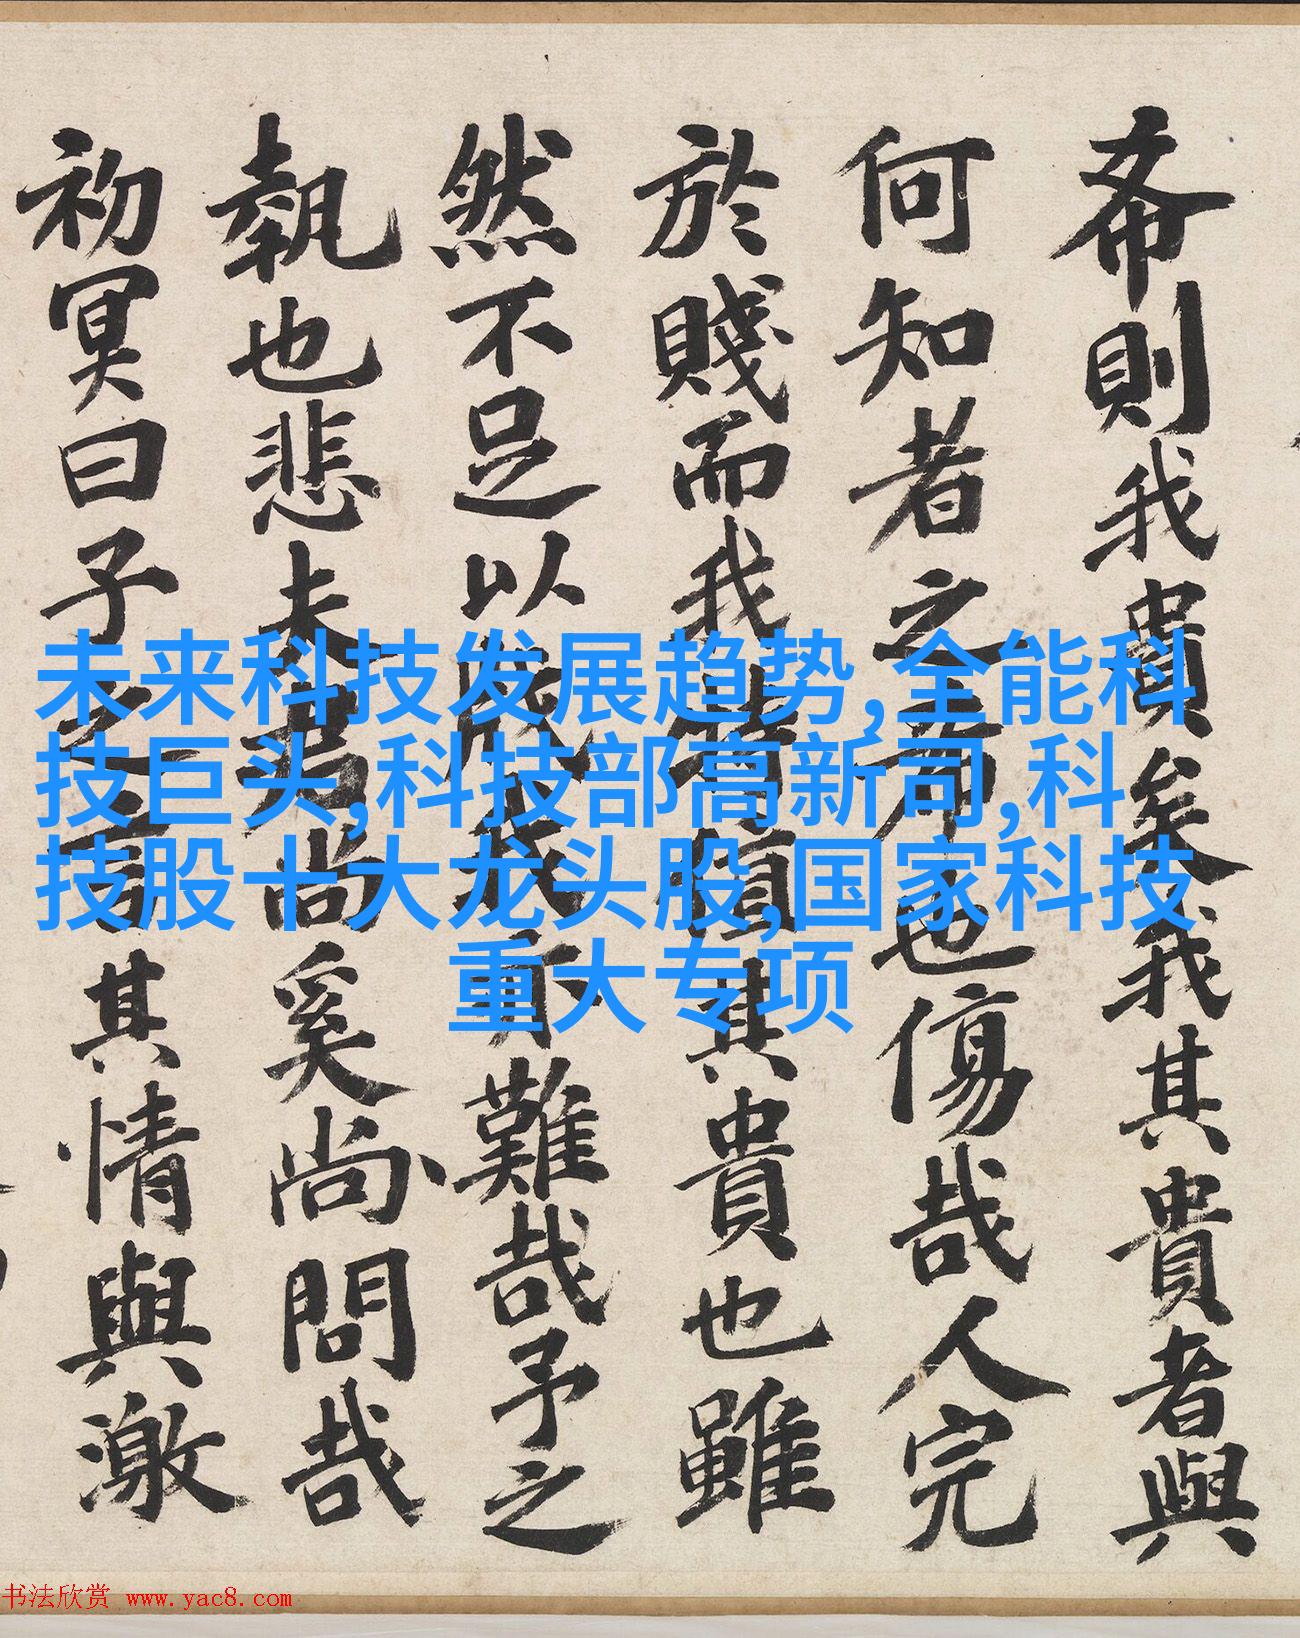 希則我貴矣我其貴者與
何知者之希也傷哉人完
於賤而我其貴也雖
然不足以我亦難哉予之
執也悲夫君尚奚尚問哉
初冥曰子之言其情與激
未来科技发展趋势,全能科
技巨头,科技部高新司,科
技股十大龙头股,国家科技
重大专项
书法欣赏 www.yac8.com